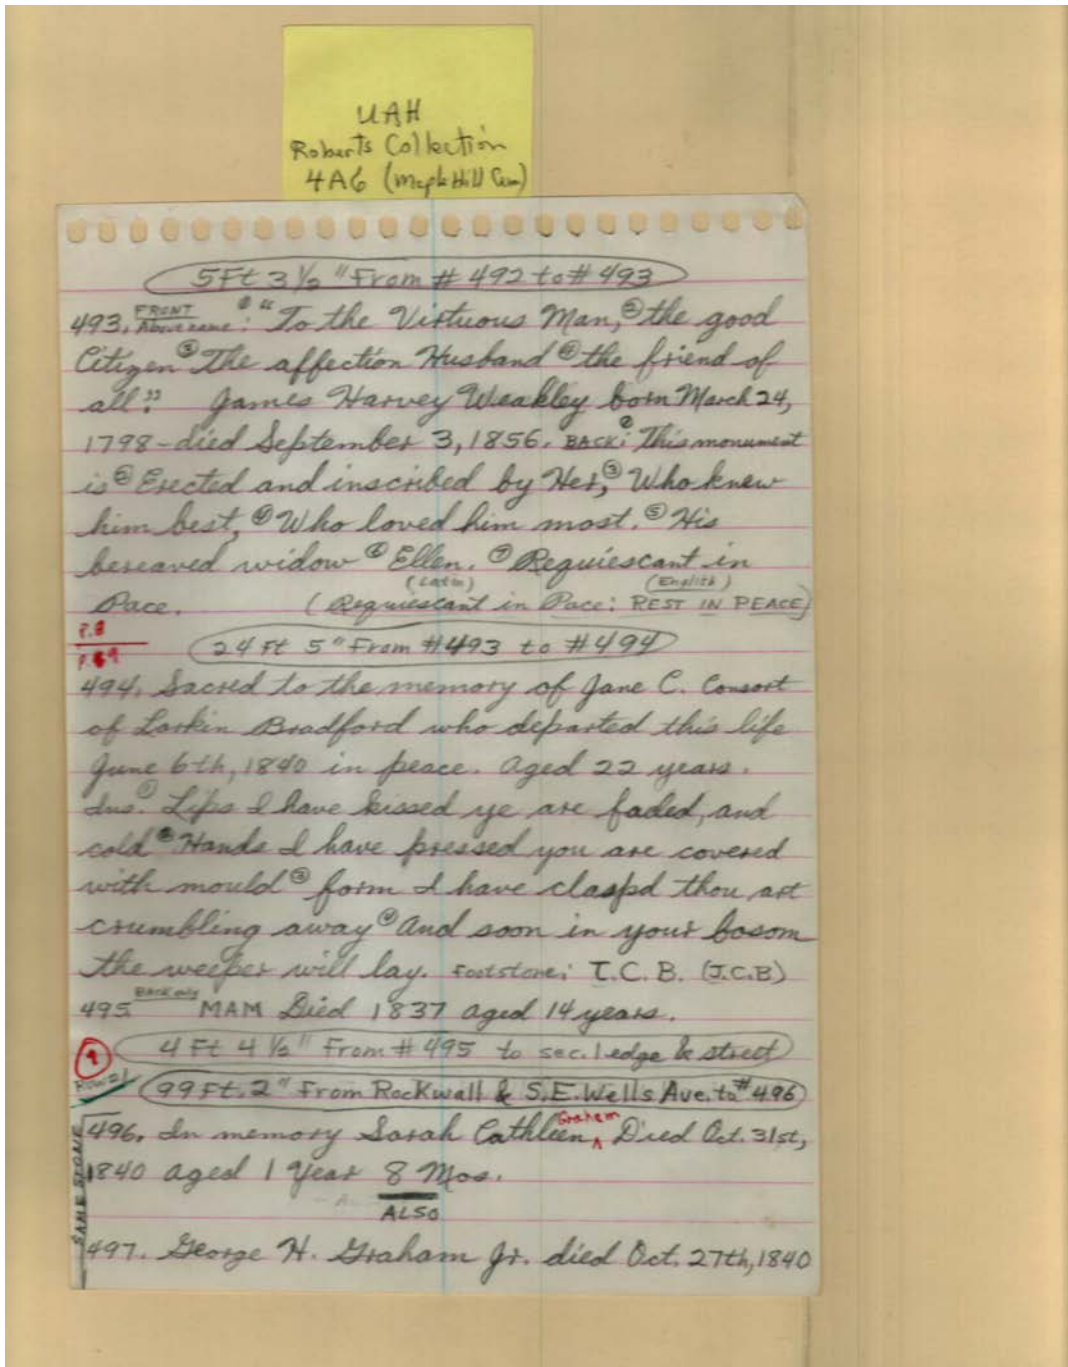 UAH
Roberts Collection
4A6 (Maple Hill Cem)
5Ft 3½" From # 492 to # 493
493. FRONT Above name: ① "To the Virtuous Man, ② the good
Citizen ③ The affection Husband ④ the friend of
all." James Harvey Weakley born March 24,
1798-died September 3, 1856. BACK: This monument
is ② Erected and inscribed by Her, ③ Who knew
him best, ④ Who loved him most. ⑤ His
bereaved widow ⑥ Ellen. ⑦ Requiescant in
(Latin) (English)
Pace. (Requiescant in Pace: REST IN PEACE)
P.8
24 Ft 5" From #493 to #494
P. 9
494. Sacred to the memory of Jane C. Consort
of Larkin Bradford who departed this life
June 6th, 1840 in peace. Aged 22 years.
Ins. ① Lips I have kissed ye are faded, and
cold ② Hands I have pressed you are covered
with mould ③ form I have claspd thou art
crumbling away ④ And soon in your bosom
the weeper will lay. Footstone: I.C.B. (J.C.B)
495 Back only MAM Died 1837 aged 14 years.
9 4 Ft 4½" From # 495 to sec. 1 edge & street
Row #1 99 Ft. 2" From Rockwall & S.E. Wells Ave. to # 496
496. In memory Sarah Cathleen, ^ Graham Died Oct. 31st,
1840 aged 1 Year 8 Mos.
ALSO
SAME STONE
497. George H. Graham Jr. died Oct. 27th, 1840